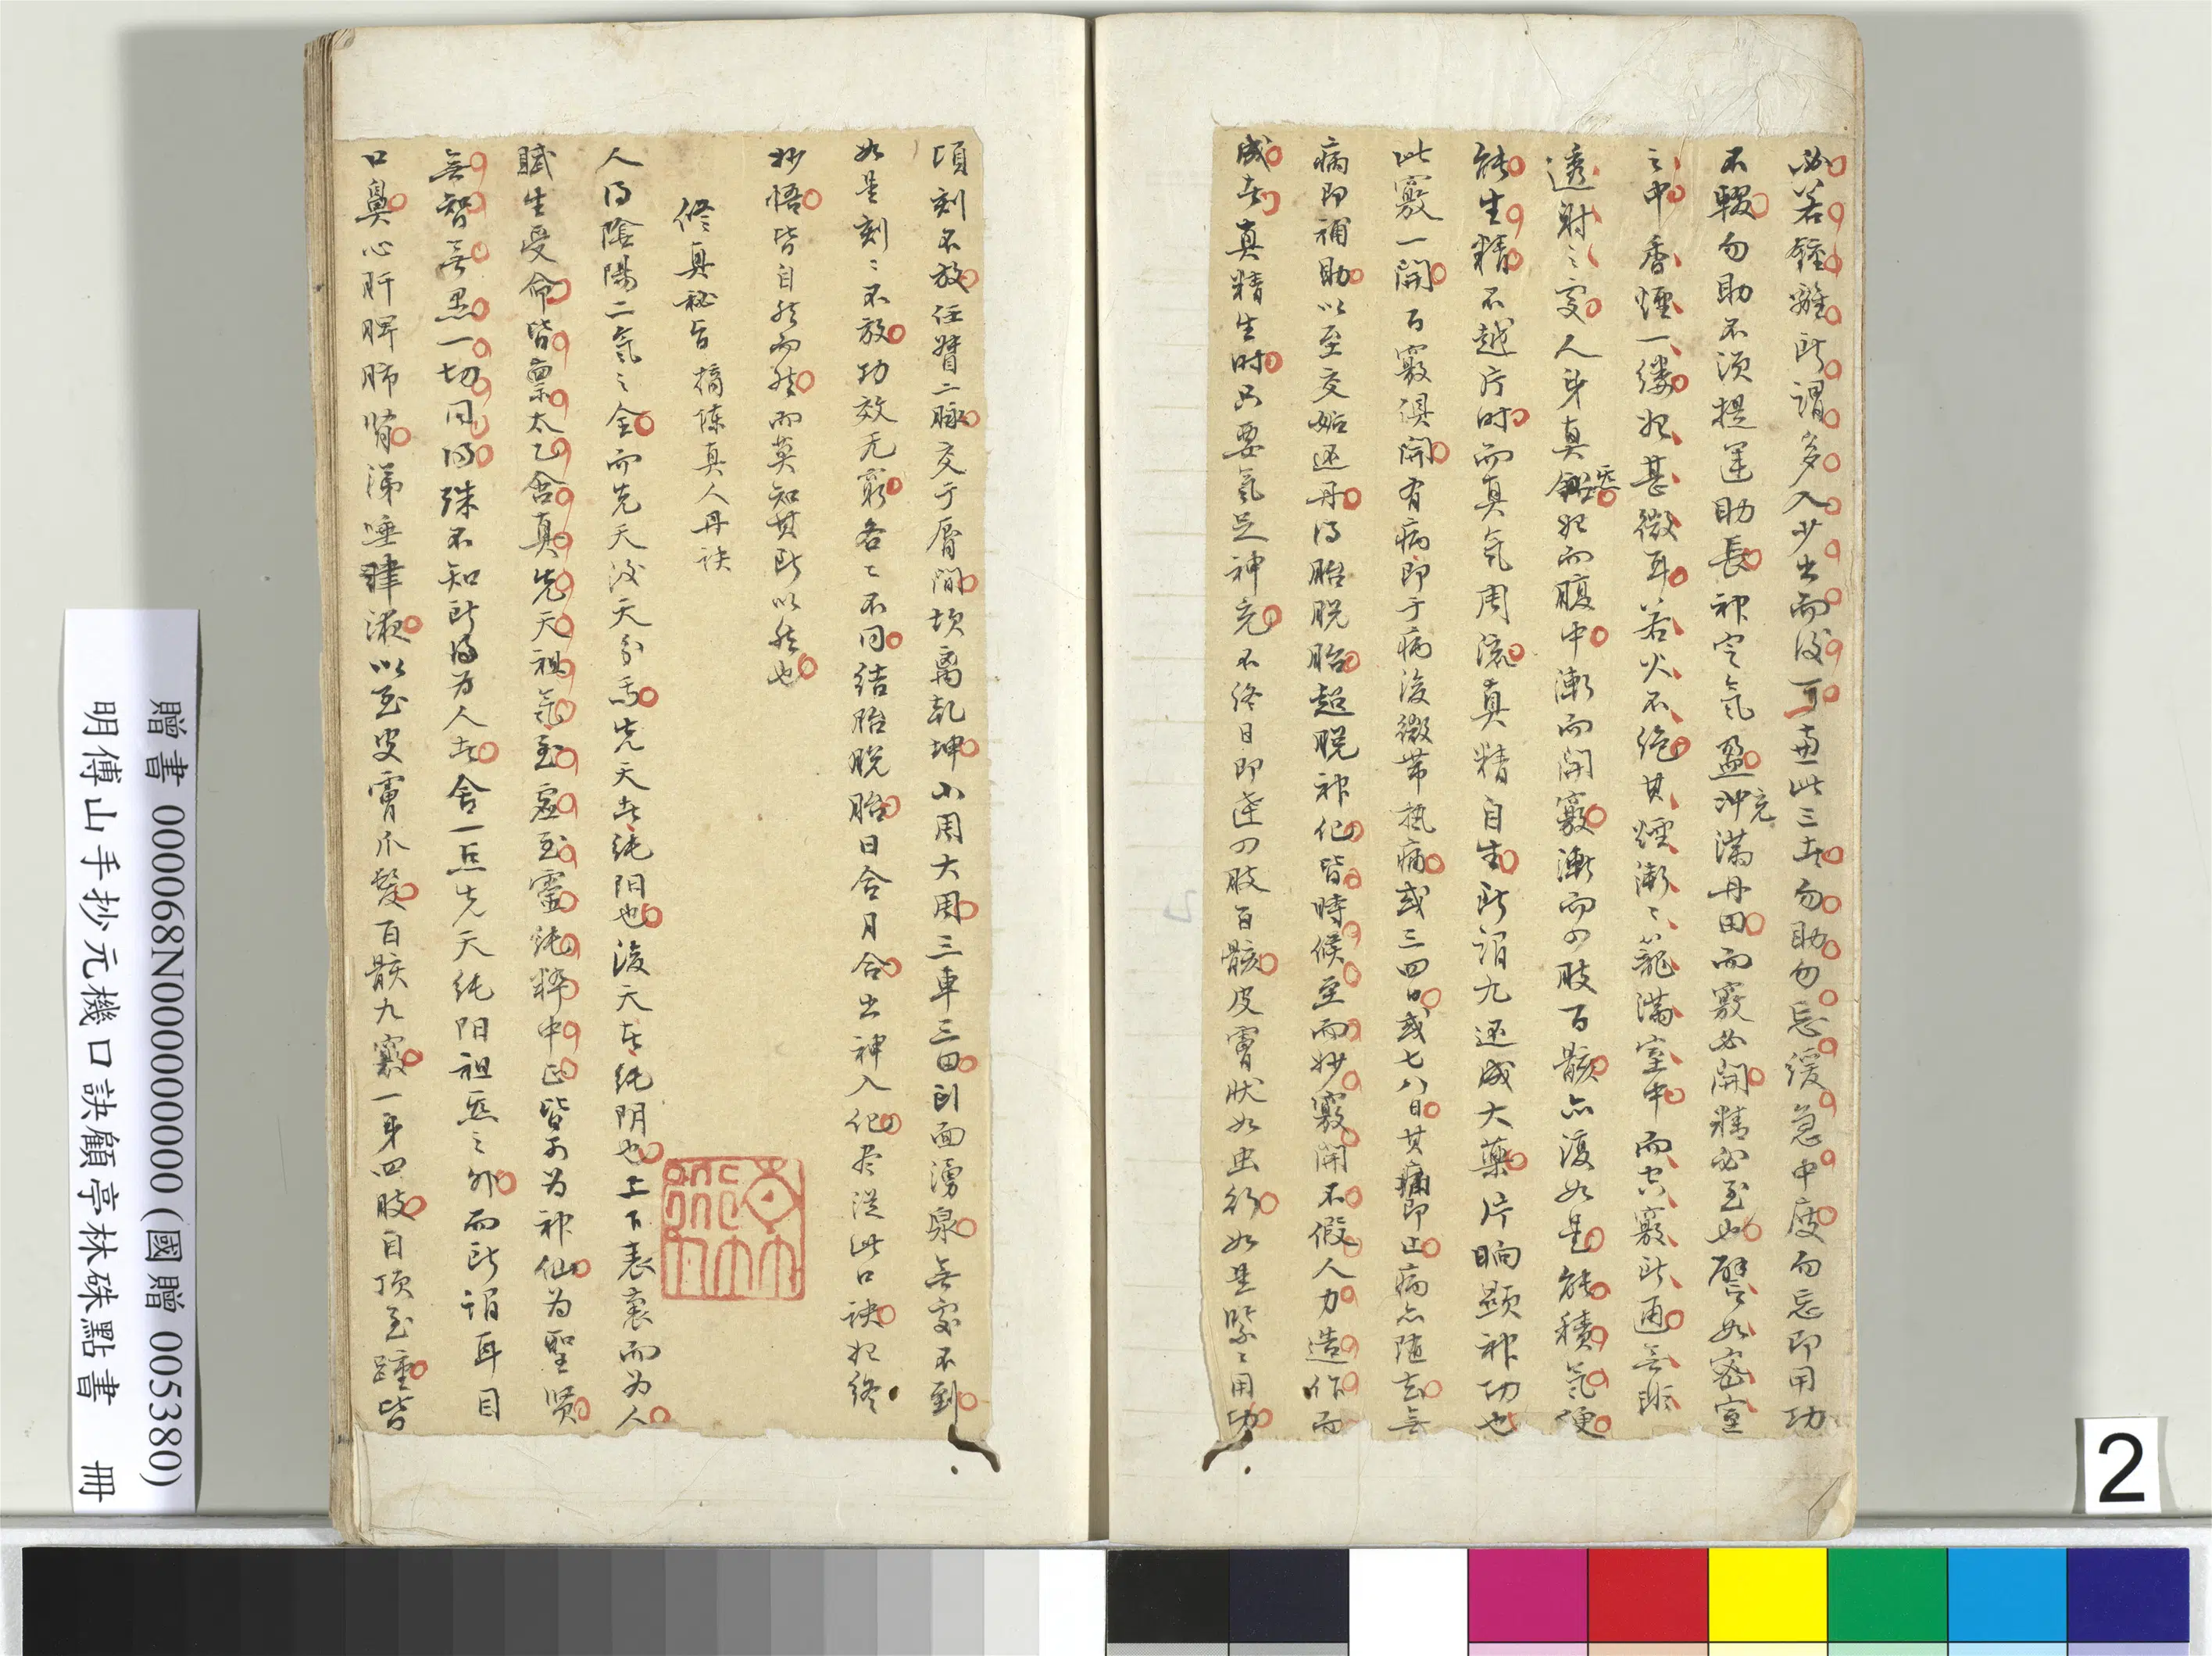 必若鍾離所謂多入少出而後可盡此三者勿助勿忘緩急中度勿忘即用功
不輟勿助不須提運助長神定氣盈冲滿丹田而竅必開精必至也譬如密室
充
之中香煙一縷始甚微耳若火不絕其煙漸ミ籠滿室中而空竅所通無距
透射之處人身真炁始而腹中漸而開竅漸而四肢百骸亦復如是能積氣便
能生精不越片時而真氣周流真精自生所謂九还成大藥片晌顕神功也
此竅一開百竅俱開有病即于病後微帶热痛或三四日或七八日其痛即止病亦随去無
病即補助以至交姤还丹得胎脱胎超脱神化皆時候至而妙竅開不假人力造作而
成者真精生时只要氣足神充不終日即達四肢百骸皮膚狀如虫行如是緊ミ用功
頃刻不放任督二脉交于唇間坎离乾坤小周大周三車三田到面湧泉無處不到
如是刻ミ不放功效无窮各ミ不同結胎脱胎日合月合出神入化尽從此口訣起終
妙悟皆自然而然而莫知其所以然也
修真秘旨 摘陳真人丹訣
人得陰陽二氣之全而先天後天分焉先天者純阳也後天者純阴也上下表裏而为人
賦生受命皆稟太乙含真先天祖氣至虚至靈純粹中正皆可为神仙为聖贤
無智無愚一切同得殊不知所以为人者舍一点先天純阳祖炁之外而所謂耳目
口鼻心肝脾肺腎涕唾津液以至皮膚爪髮百骸九竅一身四肢自頂至踵皆
贈書 000068N000000000 (國贈 005380)
明傅山手抄元機口訣顧亭林硃點書 冊
2